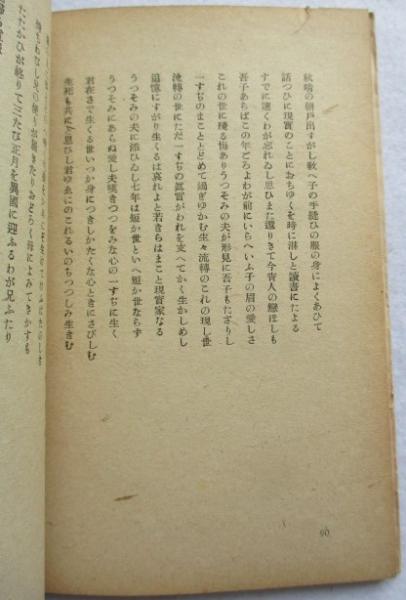 秋晴の朝戸出すがし教へ子の手縫ひの服の身によくあひて
話つひに現實のことにおちゆくを時に淋しと讀書にたよる
すでに遠くわが忘れゐし思ひまた還りきて今宵人の戀ほしも
吾子あらばこの年ごろよわが前にいらへいふ子の眉の愛しさ
これの世に殘る悔ありうつそみの夫が形見に吾子もたざりし
一すぢのまこととどめて過ぎゆかむ生々流轉のこれの現し世
流轉の世にただ一すぢの眞實がわれを支へてかく生かしめし
追憶にすがり生くるは哀れよと若きらはまこと現實家なる
うつそみの夫に添ひゐし七年は短か世といへ短か世ならず
うつそみにあらぬ愛し夫嘆きつつをみな心の一すぢに生く
君在さで生くる世いつか身につきしかたくな心ときにさびしむ
生死も共にと思ひし君ゆゑにのこれるいのちつつしみ生きむ
90
たたかひが終りて三たび正月を異國に迎ふるわが兄ふたり